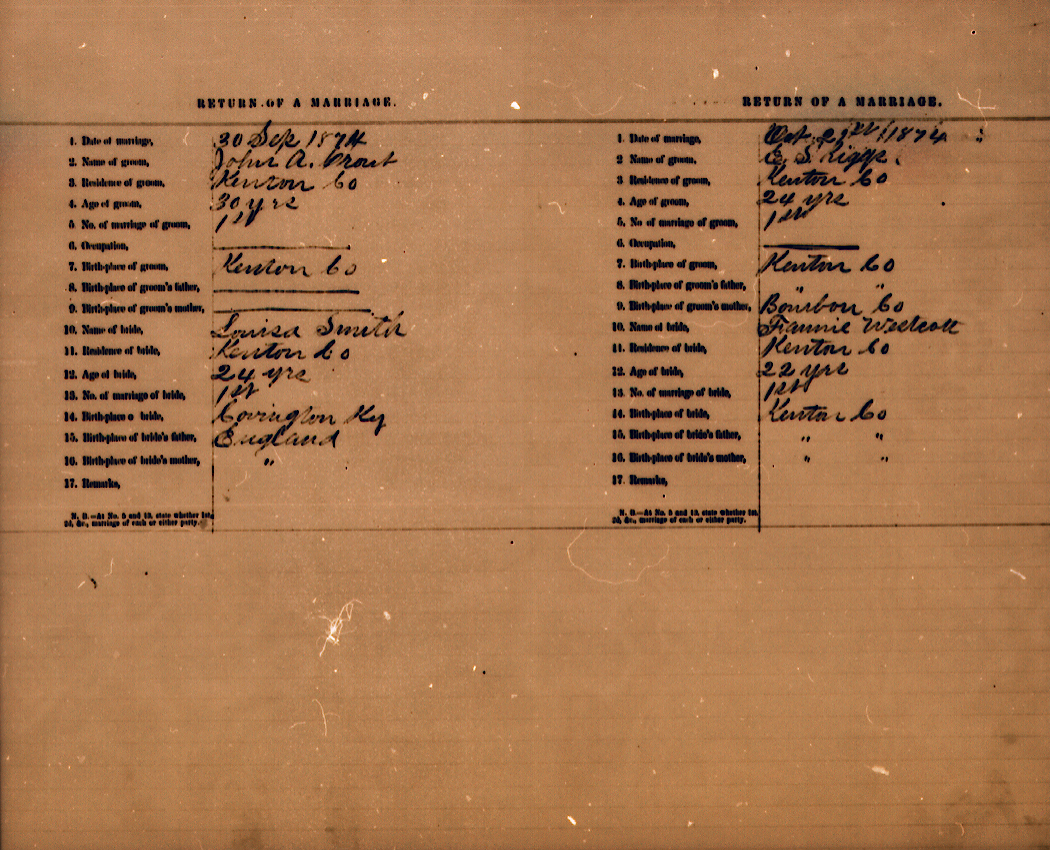 RETURN OF A MARRIAGE.
1. Date of marriage, 30 Sep 1874
2. Name of groom, John A. Prout
3. Residence of groom, Kenton Co
4. Age of groom, 30 yrs
5. No. of marriage of groom, 1st
6. Occupation,
7. Birth-place of groom, Kenton Co
8. Birth-place of groom's father,
9. Birth-place of groom's mother,
10. Name of bride, Louisa Smith
11. Residence of bride, Kenton Co
12. Age of bride, 24 yrs
13. No. of marriage of bride, 1st
14. Birth-place o bride, Covington Ky
15. Birth-place of bride's father, England
16. Birth-place of bride's mother, "
17. Remarks,
N. B.—At No. 5 and 13, state whether 1st,
2d, &c., marriage of each or either party.
RETURN OF A MARRIAGE.
1. Date of marriage, Oct 21st 1874
2 Name of groom, E. S. Riggs
3 Residence of groom, Kenton Co
4. Age of groom, 24 yrs
5. No of marriage of groom, 1st
6. Occupation,
7. Birth-place of groom, Kenton Co
8. Birth-place of groom's father, " "
9. Birth-place of groom's mother, Bourbon Co
10. Name of bride, Fannie Westcott
11. Residence of bride, Kenton Co
12. Age of bride, 22 yrs
13. No. of marriage of bride, 1st
14. Birth-place of bride, Kenton Co
15. Birth-place of bride's father, " "
16. Birth-place of bride's mother, " "
17. Remarks,
N. B.—At No. 5 and 13, state whether 1st,
2d, &c., marriage of each or either party.